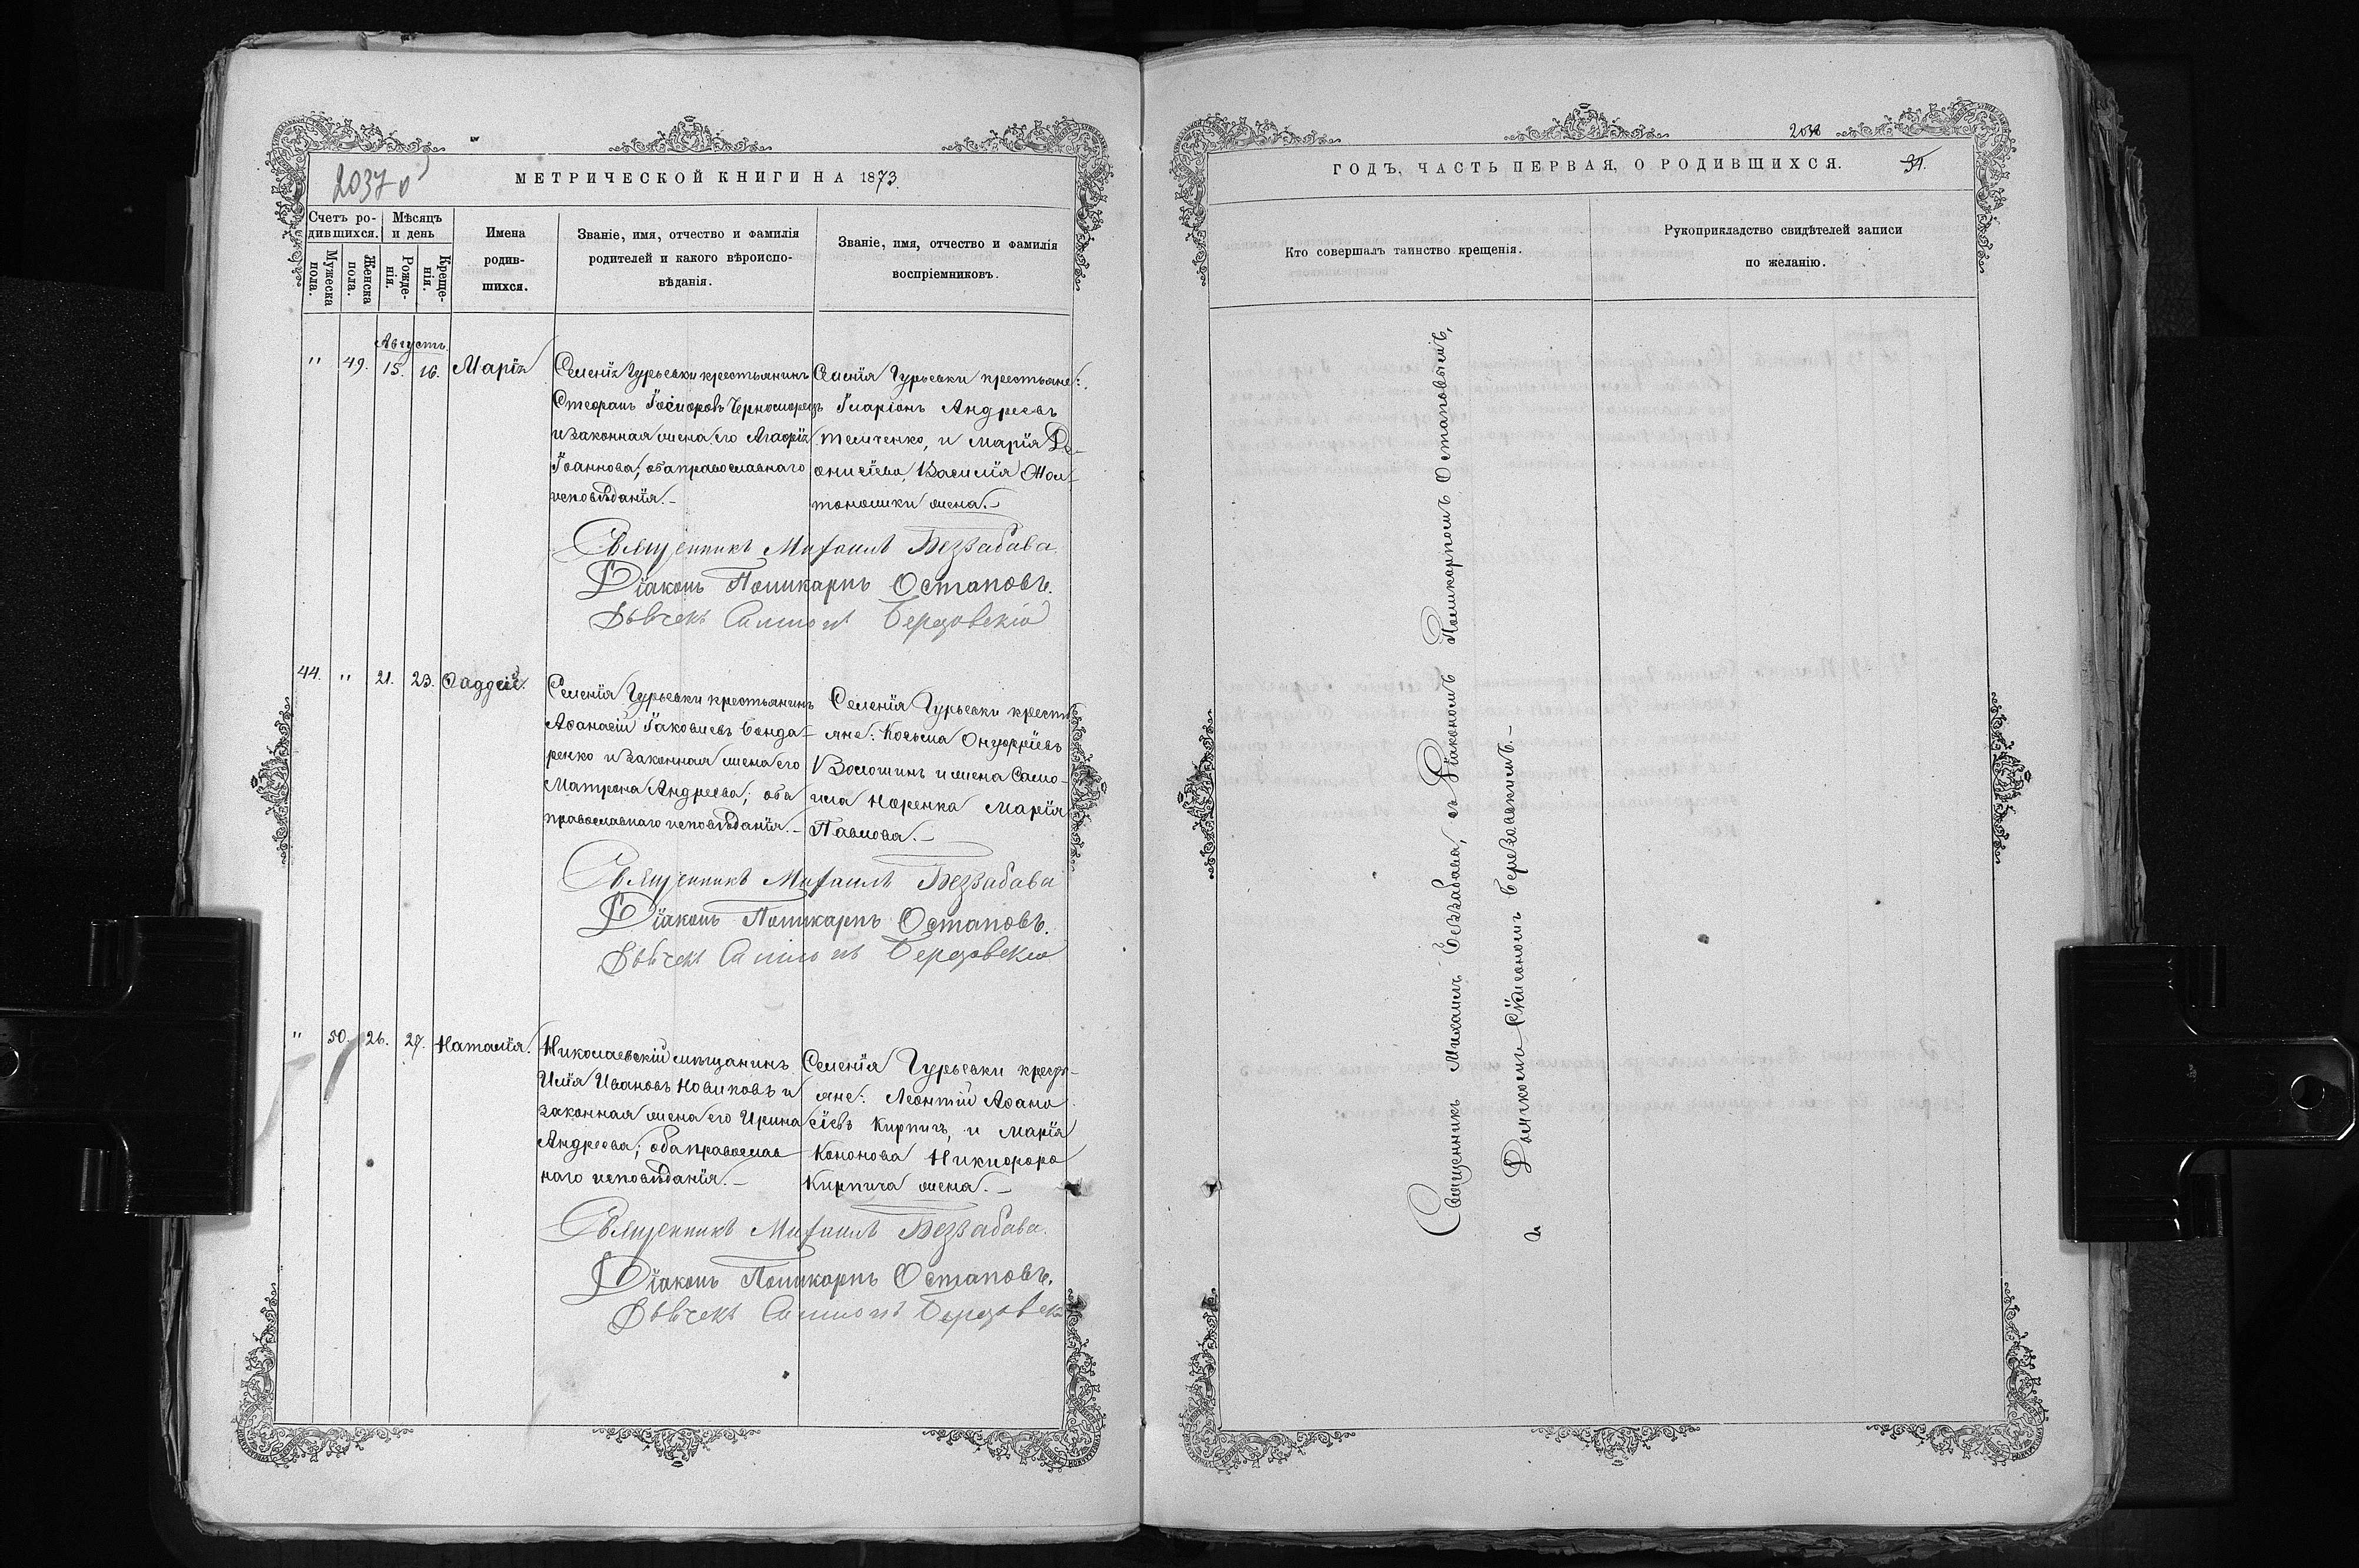 2037 об
МЕТРИЧЕСКОЙ КНИГИ НА 1873.
Счетъ ро-
дившихся.
Мѣсяцъ
и день
Мужеска
пола.
Женска
пола.
Рожде-
нія.
Креще-
нія.
Имена
родив-
шихся.
Званіе, имя, отчество и фамилія
родителей и какого вѣроиспо-
вѣданія.
Званіе, имя, отчество и фамилія
воспріемниковъ.
Августъ
" 49. 15. 16. Марія
Селенія Гурьевки крестьянинъ
Стефанъ Черноморецъ
и законная жена его Агафія
Іоаннова; оба православнаго
исповѣданія.-
Селенія Гурьевки крестьяне:
Иларіонъ Андреевъ
Темченко, и Марія Де-
онисіева, Василія Жол-
тоножки жена.-
Священникъ Михаилъ Беззабава.
Діаконъ Поликарпъ Остаповъ.
Дьячекъ Симеонъ Березовскій
44. " 21. 23. Фаддей.
Селенія Гурьевки крестьянинъ
Афанасій Іаковлевъ Бонда-
ренко и законная жена его
Матрона Андреева; оба
православнаго исповѣданія.-
Селенія Гурьевки кресть-
яне: Косьма Онуфріевъ
Волошинъ и жена Само-
ила Норенка Марія
Павлова.-
Священникъ Михаилъ Беззабава
Діаконъ Поликарпъ Остаповъ.
Дьячекъ Симеонъ Березовскій
" 50. 26. 27. Наталія.
Николаевскій мѣщанинъ
Илія Ивановъ Новиковъ и
законная жена его Ирина
Андреева; оба православ-
наго исповѣданія.-
Селенія Гурьевки кресть-
яне: Леонтій Афана-
сіевъ Кирпичъ, и Марія
Кононова Никифора
Кирпича жена.-
Священникъ Михаилъ Беззабава.
Діаконъ Поликарпъ Остаповъ.
Дьячекъ Симеонъ Березовскій
2038
ГОДЪ, ЧАСТЬ ПЕРВАЯ, О РОДИВШИХСЯ.
Кто совершалъ таинство крещенія.
Рукоприкладство свидѣтелей записи
по желанію.
Священникъ Михаилъ Беззабава, съ Діакономъ Поликарпомъ Остаповымъ,
и Дьячкомъ Симеономъ Березовскимъ.-